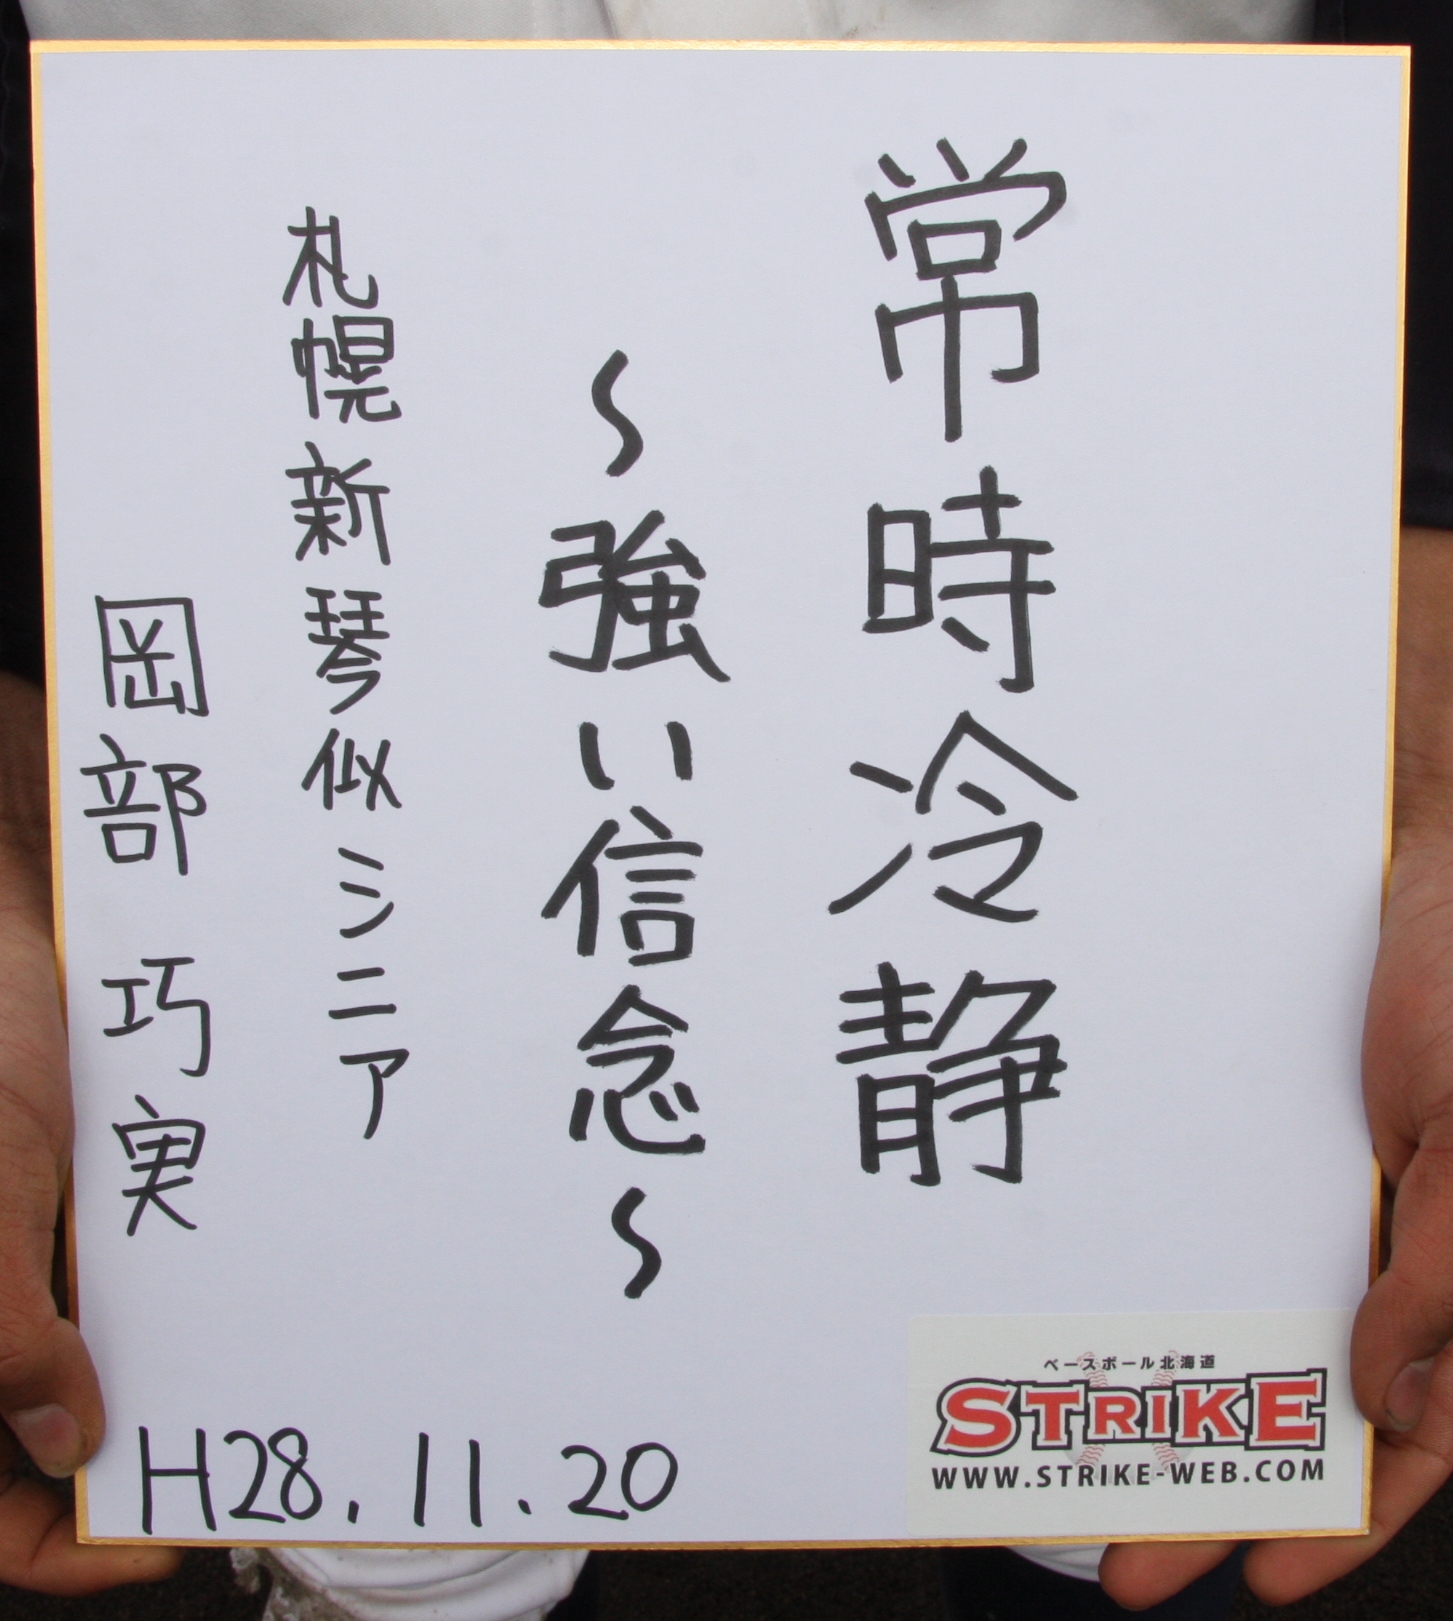 常時冷静
〜強い信念〜
札幌新琴似シニア
岡部巧実
H28.11.20
ベースボール北海道
STRIKE
WWW.STRIKE-WEB.COM